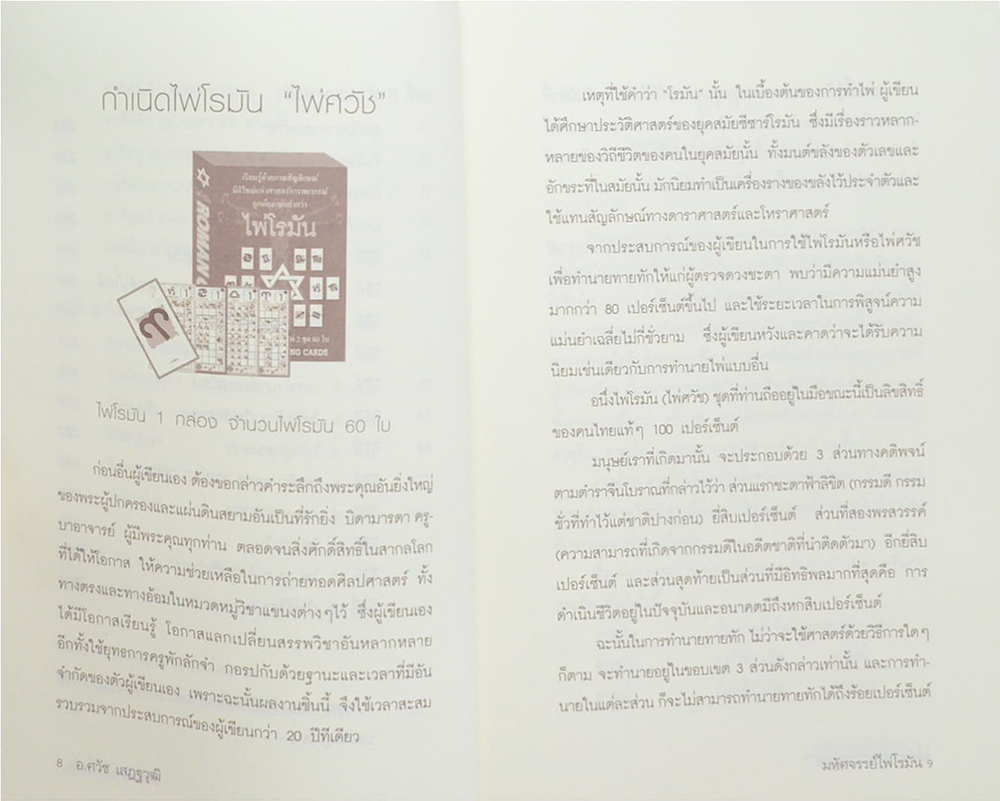 กำเนิดไพ่โรมัน “ไพ่ศวัช”
เรียนรู้ด้วยภาพสัญลักษณ์
มิติใหม่แห่งศาสตร์การพยากรณ์
ถูกต้องแม่นยำกว่า
ไพ่โรมัน
ROMAN
2 ชุด 60 ใบ
NG CARDS
ไพ่โรมัน 1 กล่อง จำนวนไพ่โรมัน 60 ใบ
ก่อนอื่นผู้เขียนเอง ต้องขอกล่าวคำระลึกถึงพระคุณอันยิ่งใหญ่
ของพระผู้ปกครองและแผ่นดินสยามอันเป็นที่รักยิ่ง บิดามารดา ครู-
บาอาจารย์ ผู้มีพระคุณทุกท่าน ตลอดจนสิ่งศักดิ์สิทธิ์ในสากลโลก
ที่ได้ให้โอกาส ให้ความช่วยเหลือในการถ่ายทอดศิลปศาสตร์ ทั้ง
ทางตรงและทางอ้อมในหมวดหมู่วิชาแขนงต่างๆไว้ ซึ่งผู้เขียนเอง
ได้มีโอกาสเรียนรู้ โอกาสแลกเปลี่ยนสรรพวิชาอันหลากหลาย
อีกทั้งใช้ยุทธการครูพักลักจำ กอรปกับด้วยฐานะและเวลาที่มีอัน
จำกัดของตัวผู้เขียนเอง เพราะฉะนั้นผลงานชิ้นนี้ จึงใช้เวลาสะสม
รวบรวมจากประสบการณ์ของผู้เขียนกว่า 20 ปีทีเดียว
8 อ.ศวัช เสฏฐวุฒิ
เหตุที่ใช้คำว่า “โรมัน” นั้น ในเบื้องต้นของการทำไพ่ ผู้เขียน
ได้ศึกษาประวัติศาสตร์ของยุคสมัยซีซาร์โรมัน ซึ่งมีเรื่องราวหลาก-
หลายของวิถีชีวิตของคนในยุคสมัยนั้น ทั้งมนต์ขลังของตัวเลขและ
อักขระที่ในสมัยนั้น มักนิยมทำเป็นเครื่องรางของขลังไว้ประจำตัวและ
ใช้แทนสัญลักษณ์ทางดาราศาสตร์และโหราศาสตร์
จากประสบการณ์ของผู้เขียนในการใช้ไพ่โรมันหรือไพ่ศวัช
เพื่อทำนายทายทักให้แก่ผู้ตรวจดวงชะตา พบว่ามีความแม่นยำสูง
มากกว่า 80 เปอร์เซ็นต์ขึ้นไป และใช้ระยะเวลาในการพิสูจน์ความ
แม่นยำเฉลี่ยไม่กี่ชั่วยาม ซึ่งผู้เขียนหวังและคาดว่าจะได้รับความ
นิยมเช่นเดียวกับการทำนายไพ่แบบอื่น
อนึ่งไพ่โรมัน (ไพ่ศวัช) ชุดที่ท่านถืออยู่ในมือขณะนี้เป็นลิขสิทธิ์
ของคนไทยแท้ๆ 100 เปอร์เซ็นต์
มนุษย์เราที่เกิดมานั้น จะประกอบด้วย 3 ส่วนทางคติพจน์
ตามตำราจีนโบราณที่กล่าวไว้ว่า ส่วนแรกชะตาฟ้าลิขิต (กรรมดี กรรม
ชั่วที่ทำไว้แต่ชาติปางก่อน) ยี่สิบเปอร์เซ็นต์ ส่วนที่สองพรสวรรค์
(ความสามารถที่เกิดจากกรรมดีในอดีตชาติที่นำติดตัวมา) อีกยี่สิบ
เปอร์เซ็นต์ และส่วนสุดท้ายเป็นส่วนที่มีอิทธิพลมากที่สุดคือ การ
ดำเนินชีวิตอยู่ในปัจจุบันและอนาคตมีถึงหกสิบเปอร์เซ็นต์
ฉะนั้นในการทำนายทายทัก ไม่ว่าจะใช้ศาสตร์ด้วยวิธีการใดๆ
ก็ตาม จะทำนายอยู่ในขอบเขต 3 ส่วนดังกล่าวเท่านั้น และการทำ-
นายในแต่ละส่วน ก็จะไม่สามารถทำนายทายทักได้ถึงร้อยเปอร์เซ็นต์
มหัศจรรย์ไพ่โรมัน 9